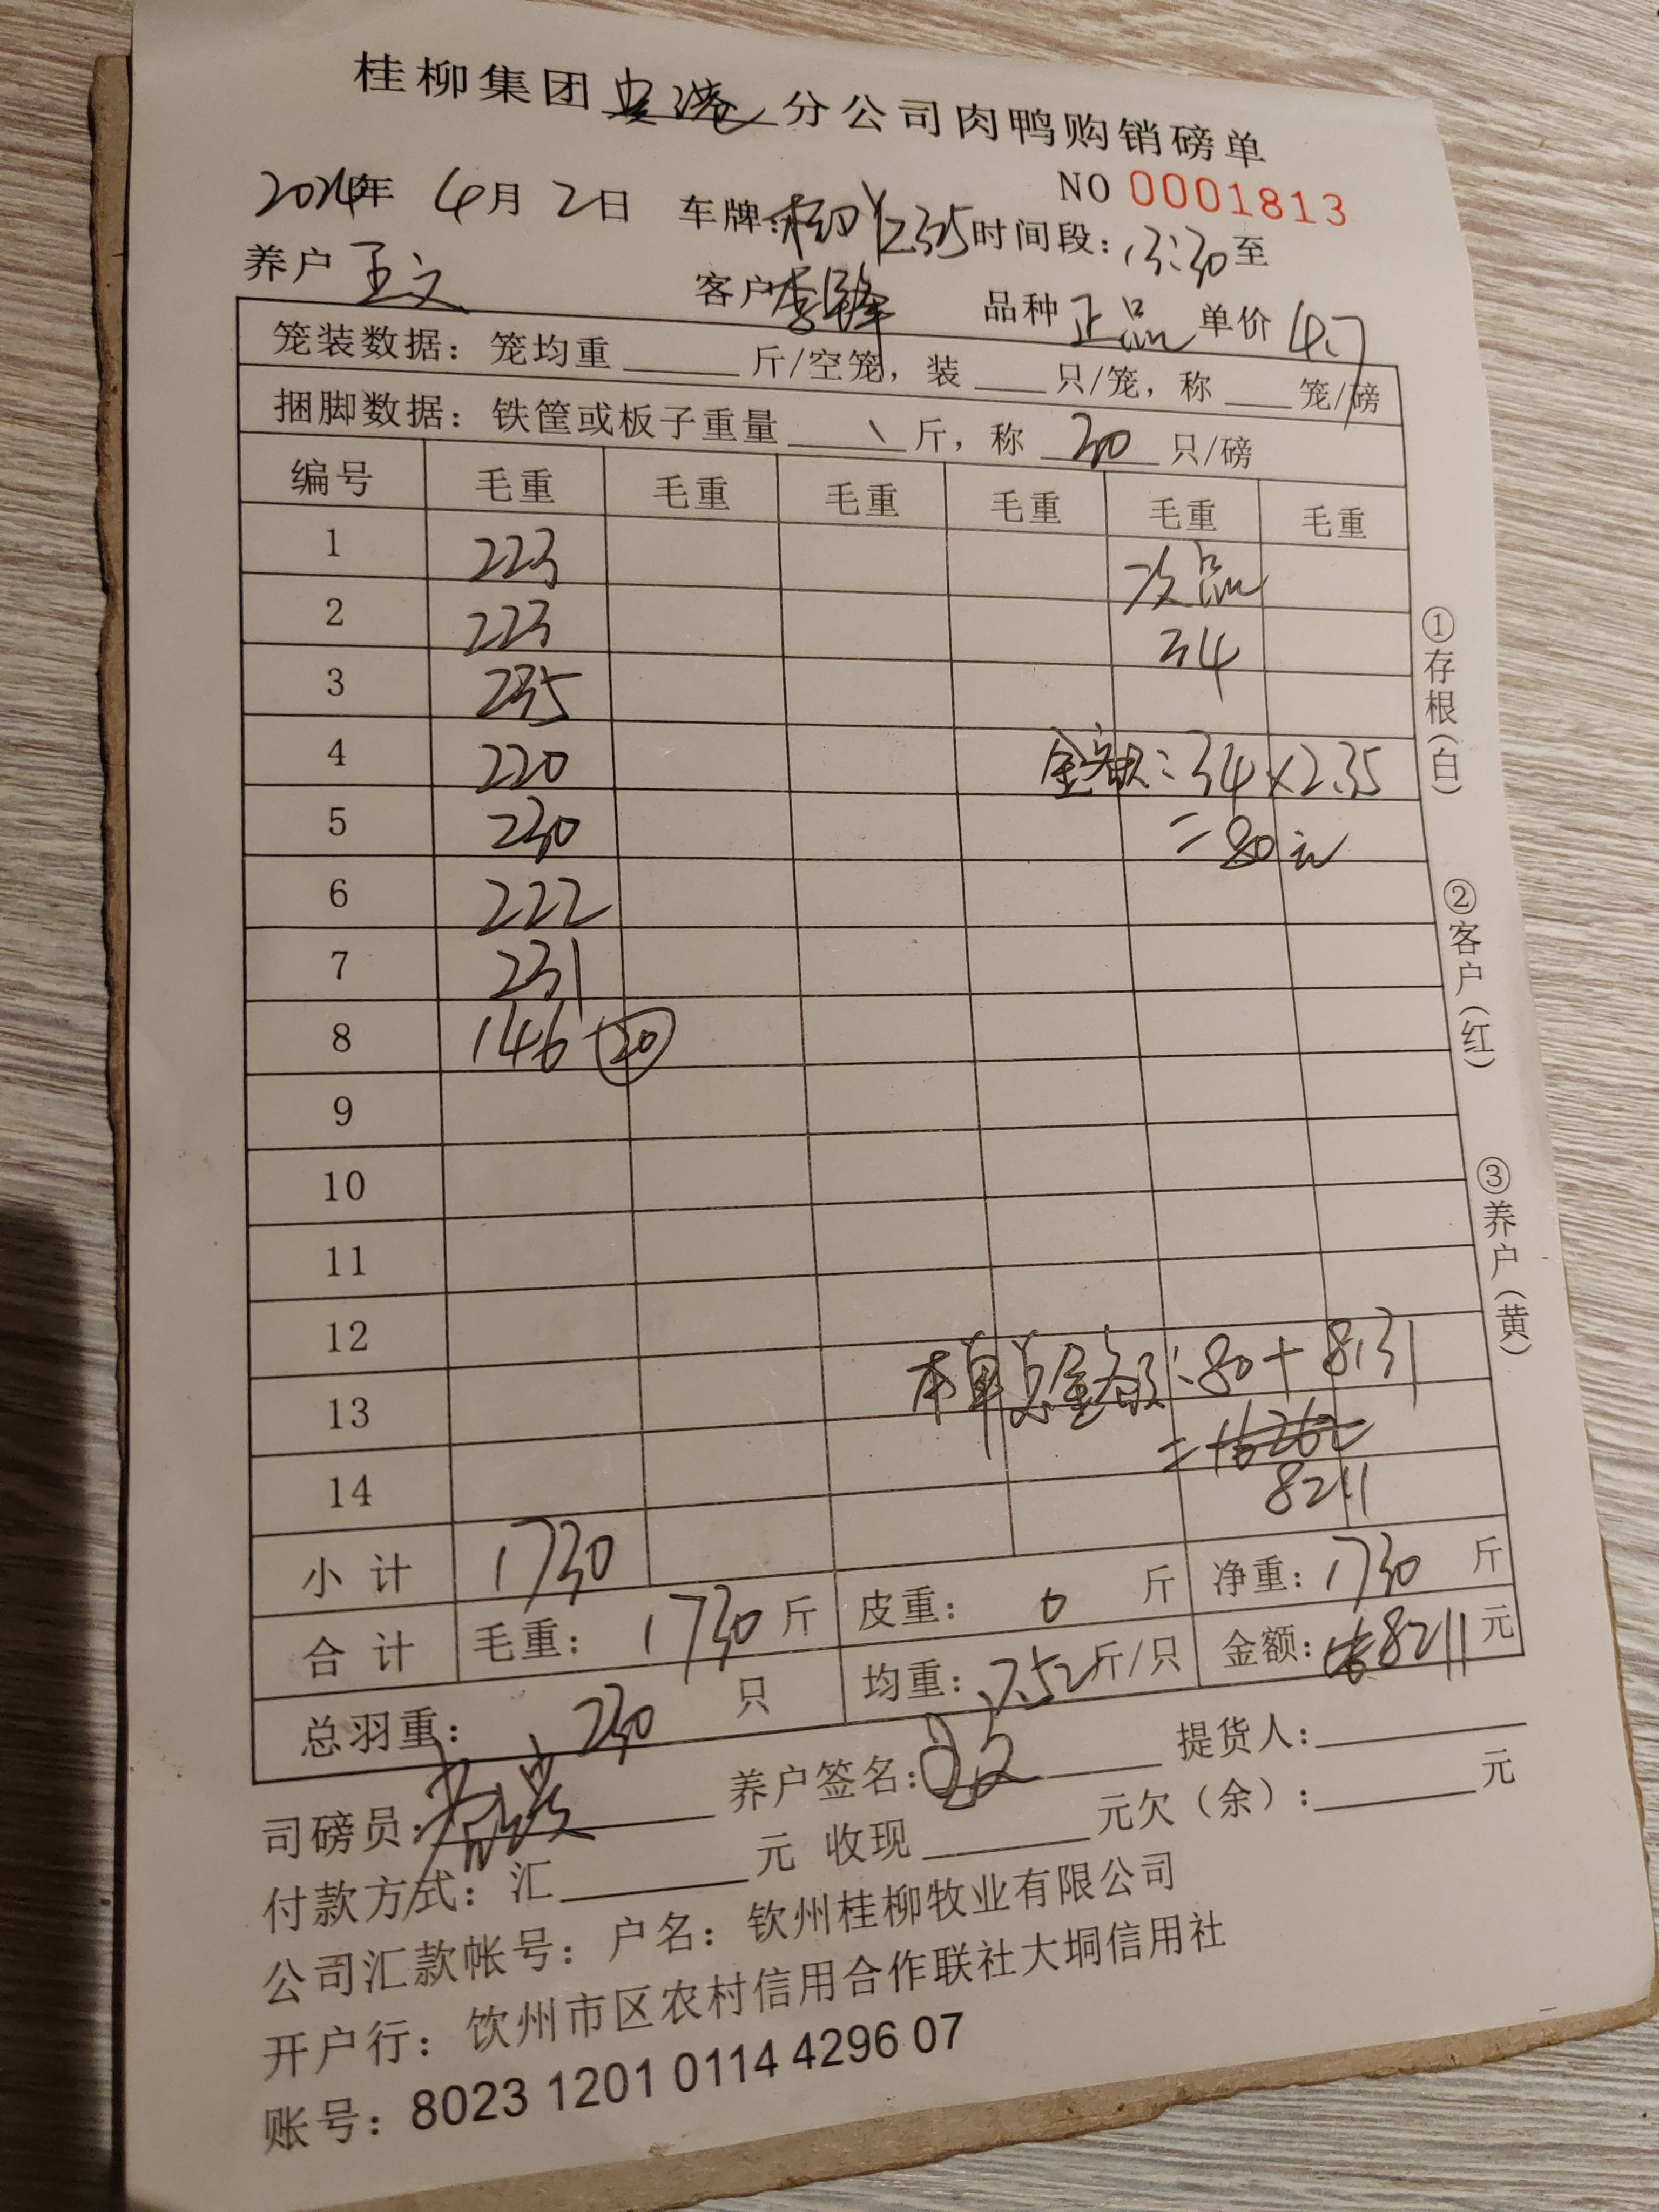 桂柳集团贵港分公司肉鸭购销磅单
NO 0001813
2024年 4月 2日 车牌: Y1235 时间段: 13:30 至
养户 王文 客户 李锋 品种 正品 单价 4.7
笼装数据: 笼均重 斤/空笼, 装 只/笼, 称 笼/磅
捆脚数据: 铁筐或板子重量 \ 斤, 称 30 只/磅
编号 毛重 毛重 毛重 毛重 毛重 毛重
1 223 次品
2 223 34
3 235
4 220 金额:34×2.35
5 230 =80元
6 222
7 231
8 146 20
9
10
11
12
13 本单总金额:80+8131
=16262
14 8211
小计 1730
合计 毛重: 1730 斤 皮重: 0 斤 净重: 1730 斤
总羽重: 230 只 均重: 7.52 斤/只 金额: 8211 元
司磅员: 养户签名: 王文 提货人:
付款方式: 汇 元 收现 元欠(余): 元
公司汇款帐号: 户名: 钦州桂柳牧业有限公司
开户行: 钦州市区农村信用合作联社大垌信用社
账号: 8023 1201 0114 4296 07
①存根(白) ②客户(红) ③养户(黄)